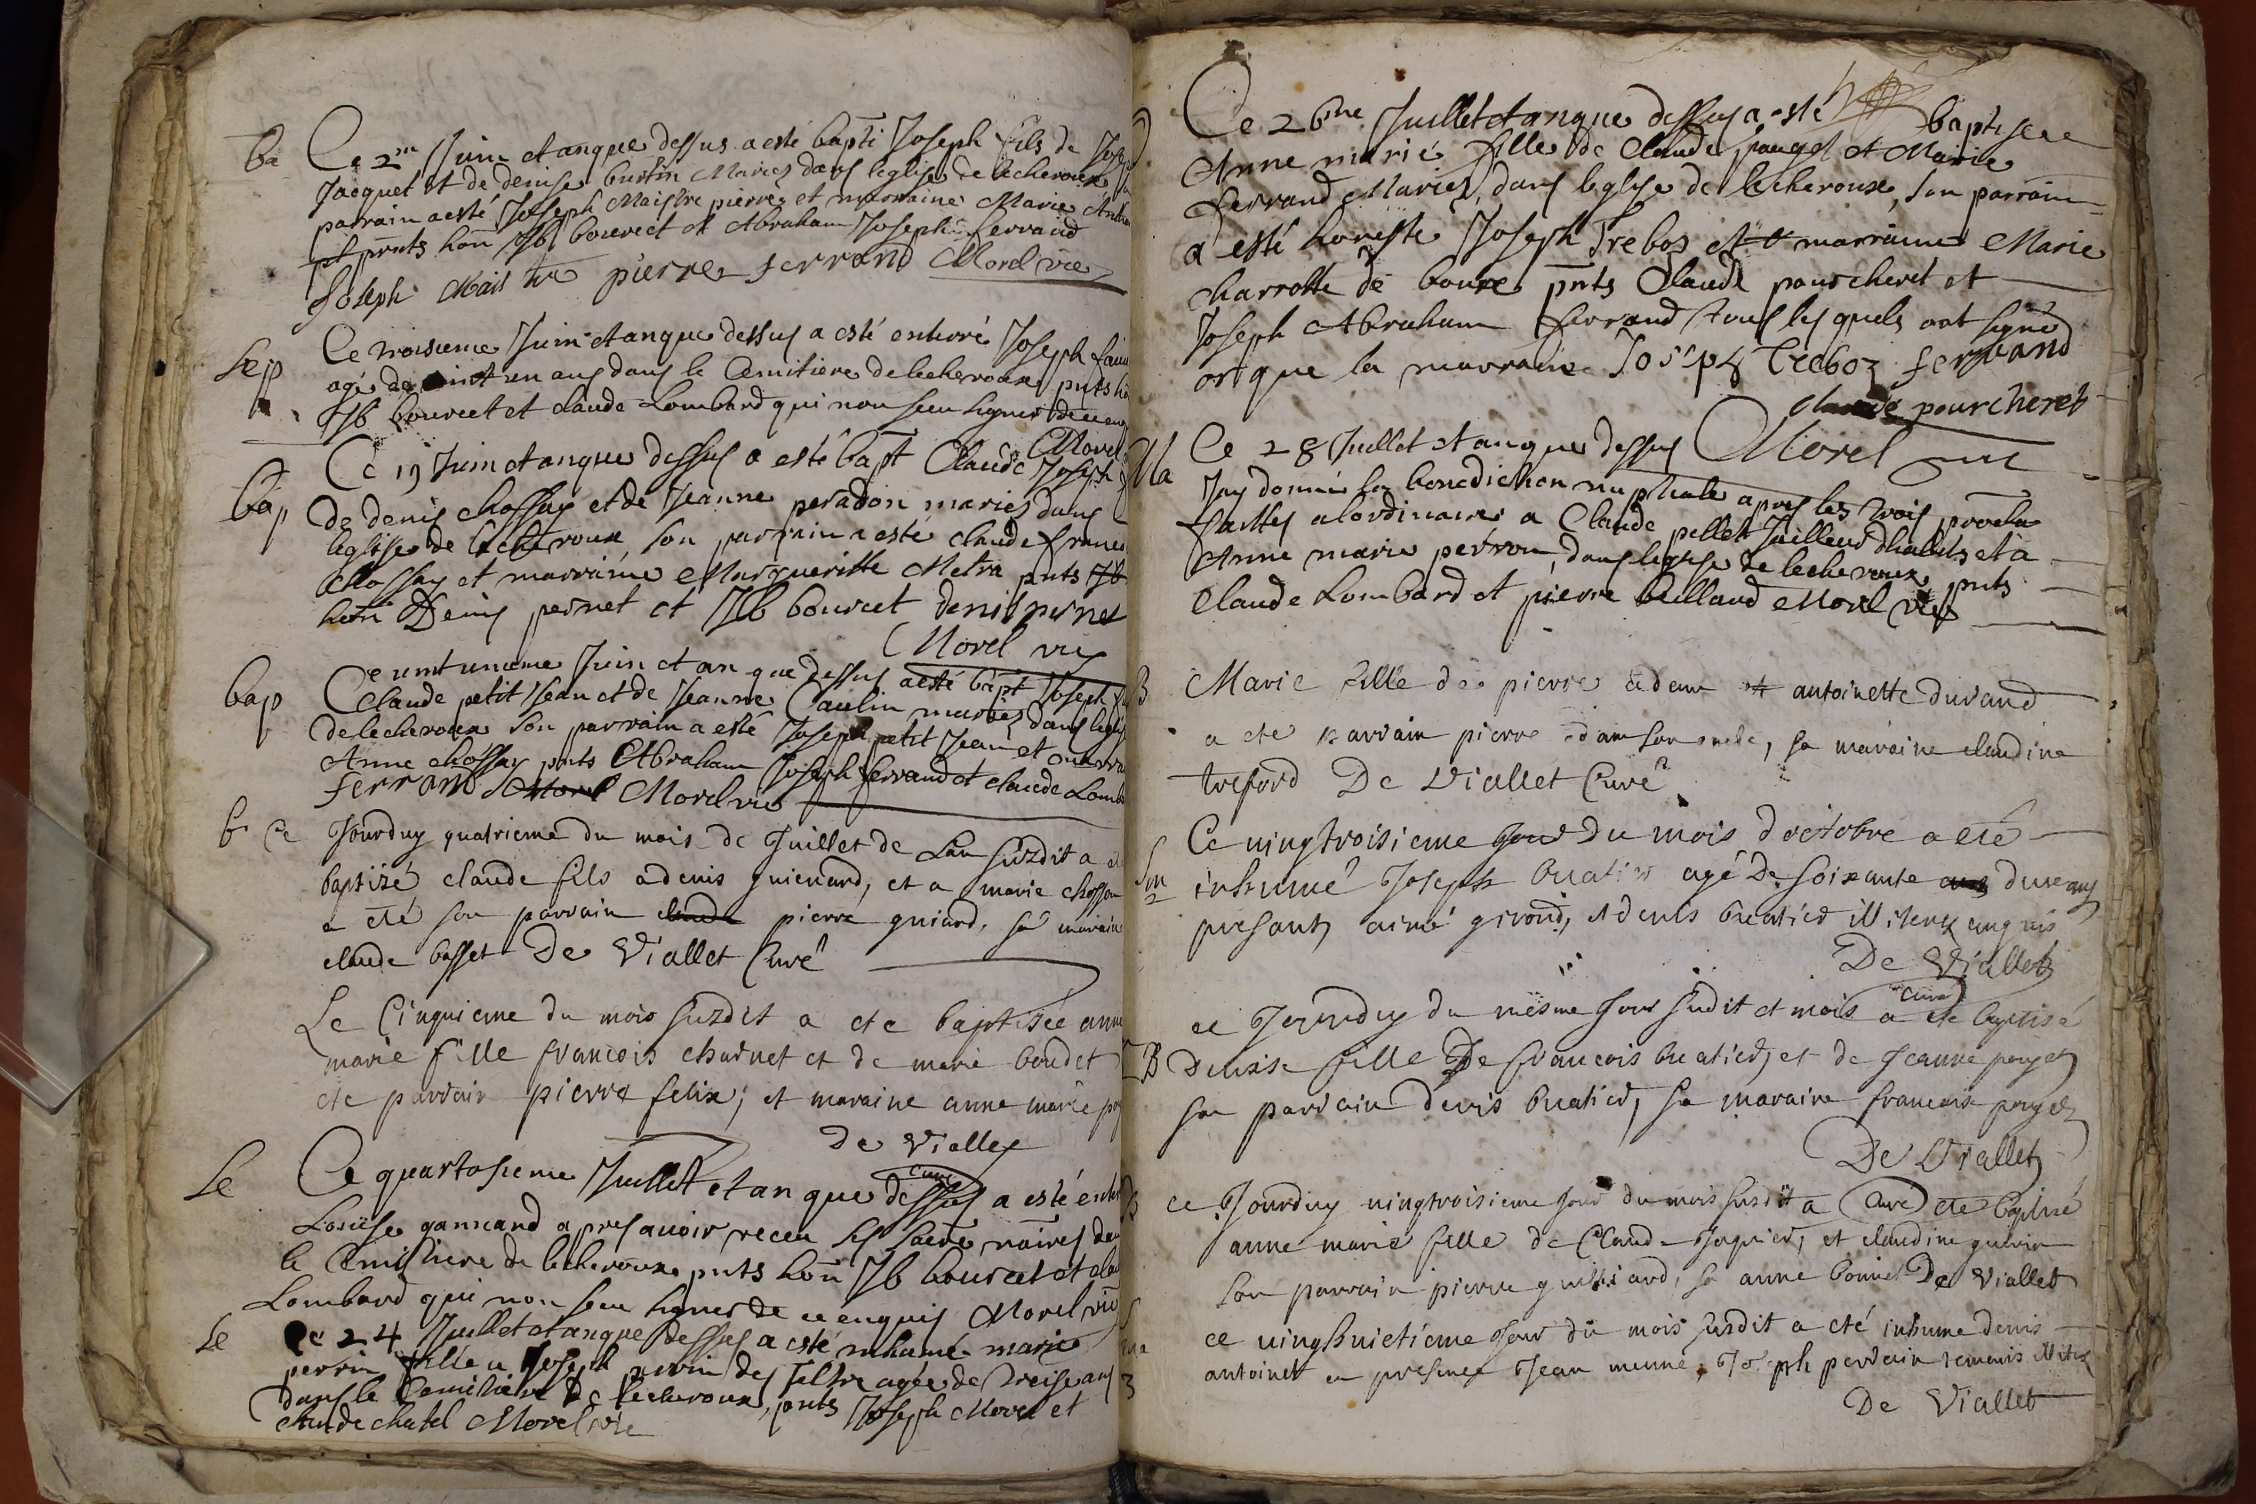 ba Ce 2me Juin et an que dessus a esté bapti Joseph fils de
Jacquet et de denise burtin Mariez dans leglise de lecheroux
parrain a esté Joseph Maistre pierre et marraine Marie
pnts hon JB bouvet et Abraham Joseph ferrand
Joseph Maistre pierre ferrand Morel vic
Sep Ce troisieme Juin et an que dessus a esté enterré Joseph
agé de vint un ans dans le Cemitiere de lecheroux pnts
JB bouvet et claude Lombard qui non sceu signer de ce enq
Morel
Bap Ce 19 Juin et an que dessus a esté bapt Claude Joseph
De denis chossay et de Jeanne peradon mariez dans
leglise de lecheroux son parrain a esté claude franc
chossay et marraine Margueritte Metra pnts JB
hon Denis pernet et JB bouvet denis pernet
Morel vic
bap Ce vint unieme Juin et an que dessus a esté bapt Joseph
Claude petit Jean et de Jeanne Caulin mariez dans leglis
de lecheroux son parrain a esté Joseph petit Jean et marra
Anne chossay pnts Abraham Joseph ferrand et claude Lomb
ferrand Morel Morel vic
b Ce Jourduy quatrieme du mois de Juillet de Lan susdit a
baptizé claude fils a denis guienard, et a marie chosson
a eté son parrain claude pierre guiard, sa maraine
claude basset De Viallet Curé
Le Cinquieme du mois susdit a ete baptisée anne
marie fille francois charnet et de marie boudet
ete parrain pierre felix, et maraine anne marie
De Viallet
curé
Se Ce quartosieme Juillet et an que dessus a esté enter
Louise gannard apres avoir receu les sacre
le Cemitiere de lecheroux pnts hon JB bouvet et
Lombard qui non sceu signer de ce enquis Morel vic
Se Ce 24 Juillet et an que dessus a esté inhumé marie
perrin fille a Joseph perrin des agée de treise ans
Dans le Cemitiere De lecheroux, pnts Joseph Morel et
claude chatel Morel vic
Ce 26me Juillet et an que dessus a esté baptisée
Anne marie fille De Claude pauget et Marie
ferrand Mariez dans leglise de lecheroux, son parrain
a esté honeste Joseph Trebos et marraine Marie
charrotte de boure pnts Claude pourcheret et
Joseph Abraham ferrand tous lesquels ont signé
or que la marraine Joseph Treboz ferrand
claude pourcheret
Ma Ce 28 Juillet et an que dessus Morel vic
Jay donné la benediction nuptiale apres les trois procla
faittes a lordinaire a Claude pellet tailleur dhabits et a
Anne marie perron, dans leglise de lecheroux pnts
Claude Lombard et pierre buillard Morel vic
B Marie fille de pierre adam et antoinette durand
a ete parrain pierre adam son, sa maraine claudine
treford De Viallet Curé
Ce vingtroisieme jour Du mois d'octobre a eté
inhumé Joseph buatier agé De soixante ans
presants aimé giroud, et denis buatier illiterez enquis
De Viallet
curé
ce Jourduy du mesme jour sudit et mois a ete baptisé
B Denise fille De francois buatier, et de Jeanne
son parrain denis buatier, sa maraine francoise
De Viallet
B ce Jourduy vingtroisieme jour du mois susdit a Curé ete baptisé
anne marie fille de Claude Joguier, et claudine guerin
son parrain pierre, sa anne bonnet De Viallet
ce vinghuictieme jour du mois susdit a eté inhume denis
antoinet en presence Jean, Joseph perdrain
De Viallet